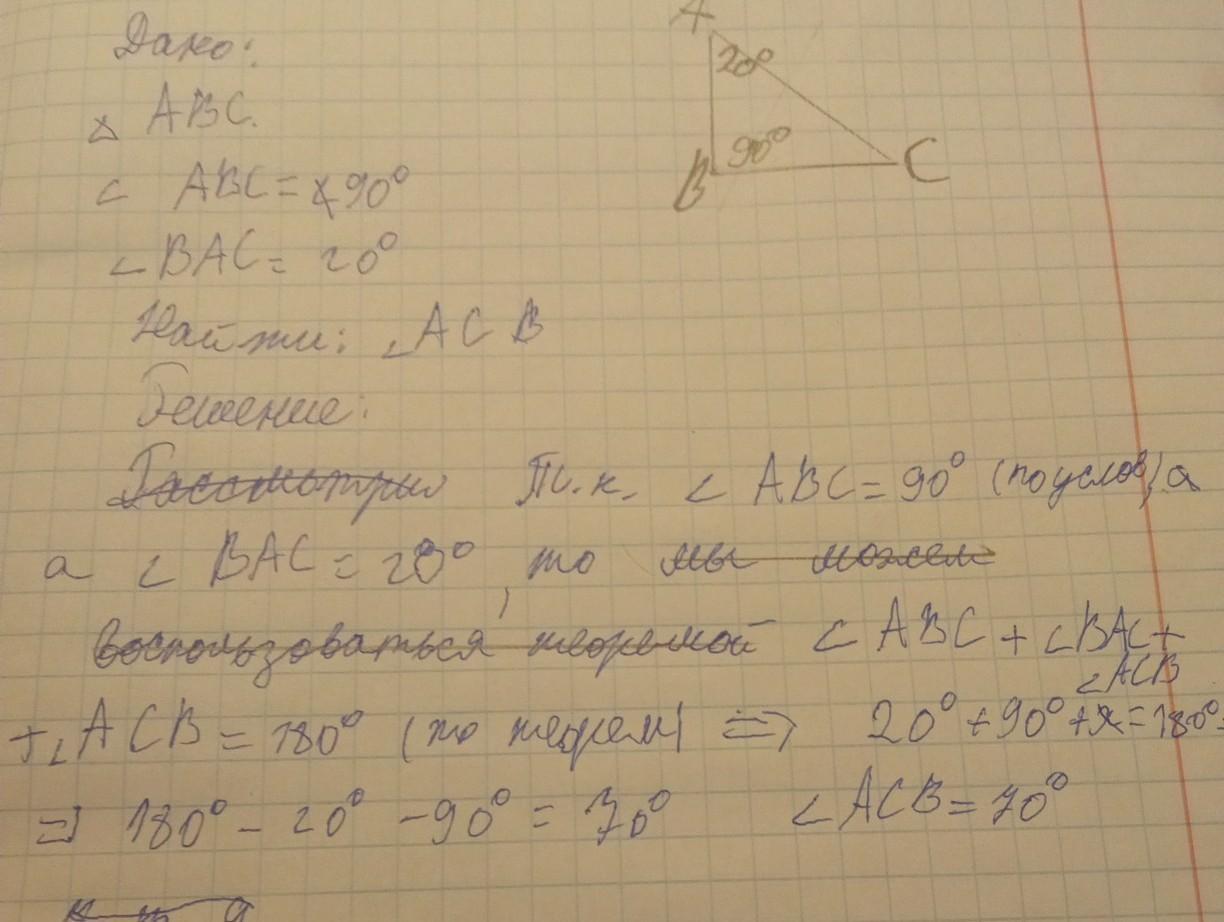 Дано:
△ ABC.
∠ ABC = 90°
∠BAC = 20°
Найти: ∠ACB
Решение:
Рассмотрим Т.к. ∠ ABC = 90° (по услов) а
а ∠ BAC = 20°, то мы можем
воспользоваться теоремой ∠ ABC + ∠BAC +
+∠ACB = 180° (по теорем) => 20° + 90° + ∠ACB = 180°
=> 180° - 20° - 90° = 70° ∠ACB = 70°
A
20°
B
90°
C